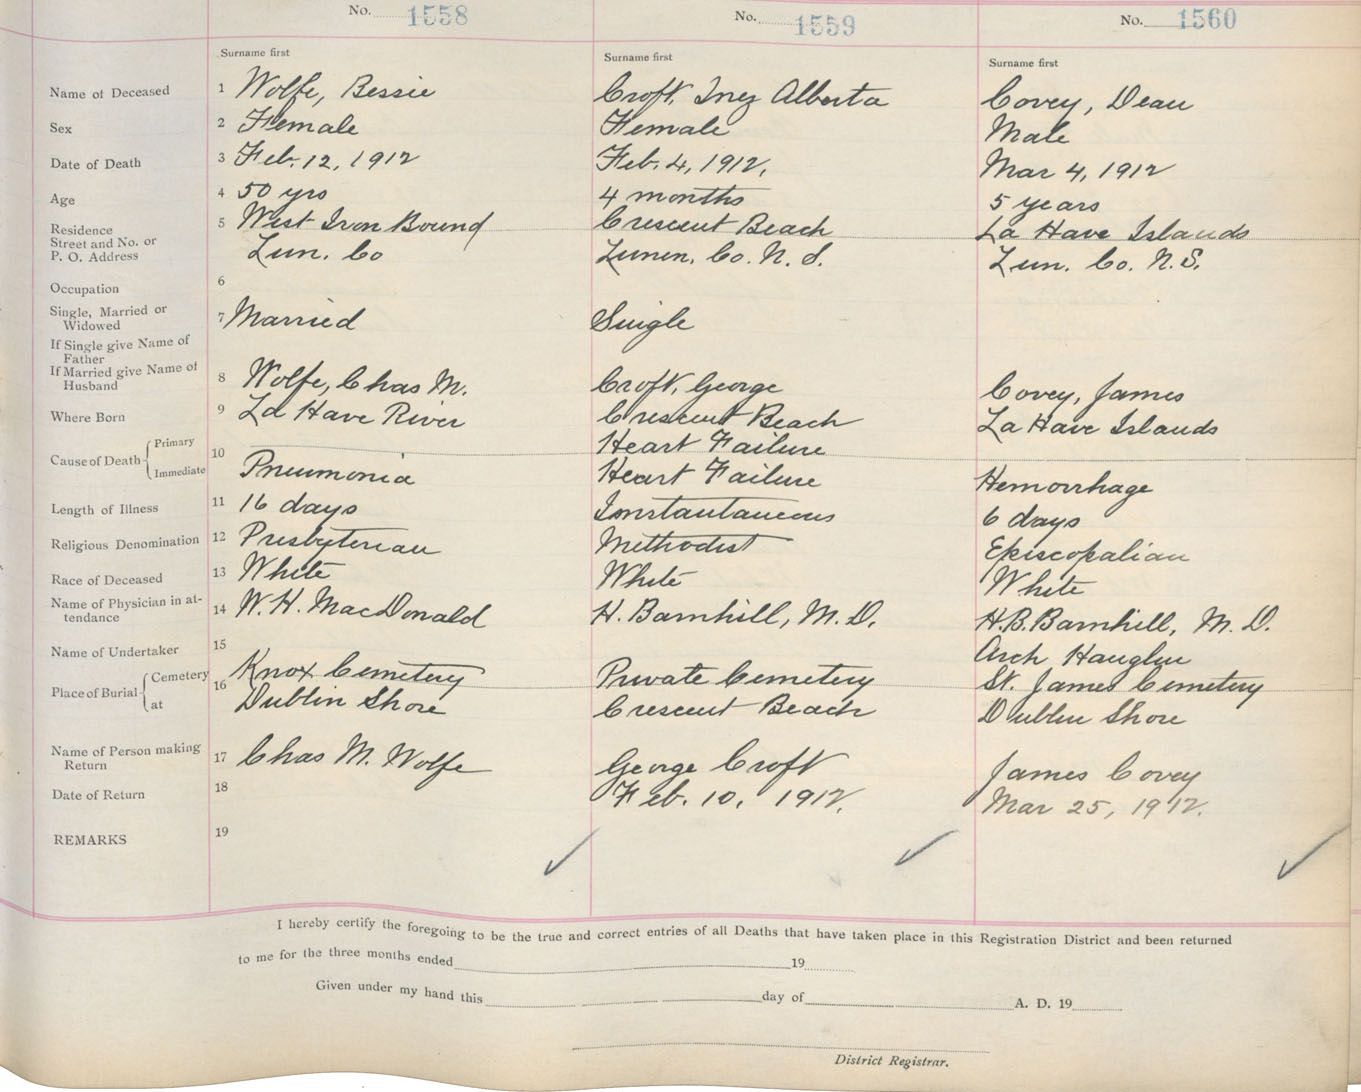 No. 1558 No. 1559 No. 1560
Surname first Surname first Surname first
Name of Deceased 1 Wolfe, Bessie Croft, Inez Alberta Covey, Dean
Sex 2 Female Female Male
Date of Death 3 Feb. 12, 1912 Feb. 4, 1912, Mar 4, 1912
Age 4 50 yrs 4 months 5 years
Residence 5 West Iron Bound Crescent Beach La Have Islands
Street and No. or
P. O. Address Lun. Co Lunen. Co. N. S. Lun. Co. N.S.
Occupation 6
Single, Married or
Widowed 7 Married Single
If Single give Name of
Father
If Married give Name of
Husband 8 Wolfe, Chas M. Croft, George Covey, James
Where Born 9 La Have River Crescent Beach La Have Islands
Cause of Death Primary 10 Heart Failure
Immediate Pneumonia Heart Failure Hemorrhage
Length of Illness 11 16 days Instantaneous 6 days
Religious Denomination 12 Presbyterian Methodist Episcopalian
Race of Deceased 13 White White White
Name of Physician in at-
tendance 14 W. H. MacDonald H. Barnhill, M. D. H.B. Barnhill, M. D.
Name of Undertaker 15 Arch
Place of Burial Cemetery 16 Knox Cemetery Private Cemetery St. James Cemetery
at Dublin Shore Crescent Beach Dublin Shore
Name of Person making
Return 17 Chas M. Wolfe George Croft James Covey
Date of Return 18 Feb. 10, 1912. Mar 25, 1912.
REMARKS 19
I hereby certify the foregoing to be the true and correct entries of all Deaths that have taken place in this Registration District and been returned
to me for the three months ended 19
Given under my hand this day of A. D. 19
District Registrar.